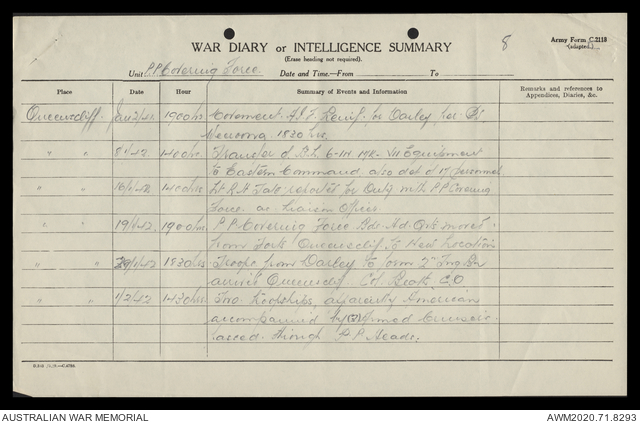 8
Army Form C.2118
(adapted.)
WAR DIARY or INTELLIGENCE SUMMARY
(Erase heading not required).
Unit P.P. Covering Force Date and Time.—From To
Place Date Hour Summary of Events and Information Remarks and references to
Appendices, Diaries, &c.
Queenscliff. Jan 1900 hrs Movement A.I.F. Reinf. for Darley
1830 hrs.
" " 8/1/42 1400 hrs Transfer of B.L. 6-in MK. VII Equipment
to Eastern Command also det of 17 personnel
" " 16/1/42 1400 hrs Lt R.H. reported for Duty with P.P. Covering
Force as Liaison Officer
" 19/1/42 1900 hrs P.P. Covering Force Bde. Hd. Qrts moved
from Fort Queenscliff to New Location
" " 29/1/42 1830 hrs Troops from Darley to form 2nd Bn
arrive Queenscliff Col. C.O
" " 1/2/42 1430 hrs Two Troopships, apparently American
accompanied by (3) Armed Cruisers
passed through P.P. Heads.
AUSTRALIAN WAR MEMORIAL AWM2020.71.8293